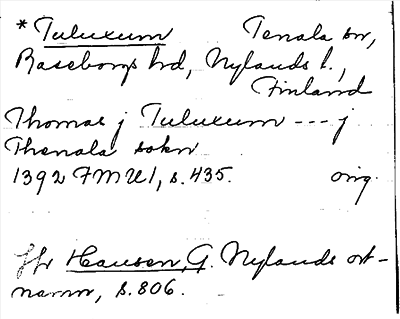 * Tuluxum Tenala sn,
Raseborgs hd, Nylands l.,
Finland
Thomas j Tuluxum --- j
Thenala sokn
1392 FMU 1, s. 435. orig.
Jfr Hausen, G. Nylands ort-
namn, s. 806.